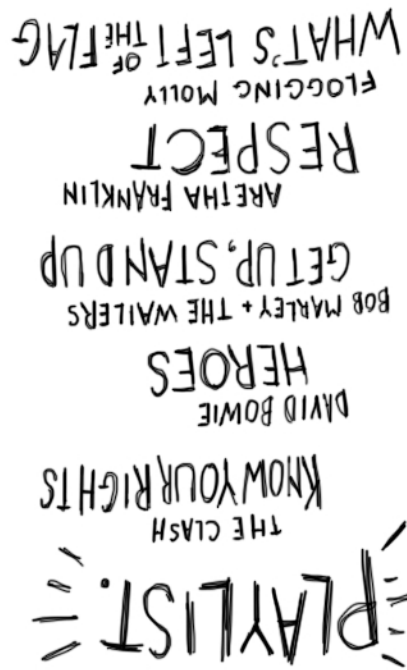 PLAYLIST.
THE CLASH
KNOW YOUR RIGHTS
DAVID BOWIE
HEROES
BOB MARLEY + THE WAILERS
GET UP, STAND UP
ARETHA FRANKLIN
RESPECT
FLOGGING MOLLY
WHAT'S LEFT OF THE FLAG